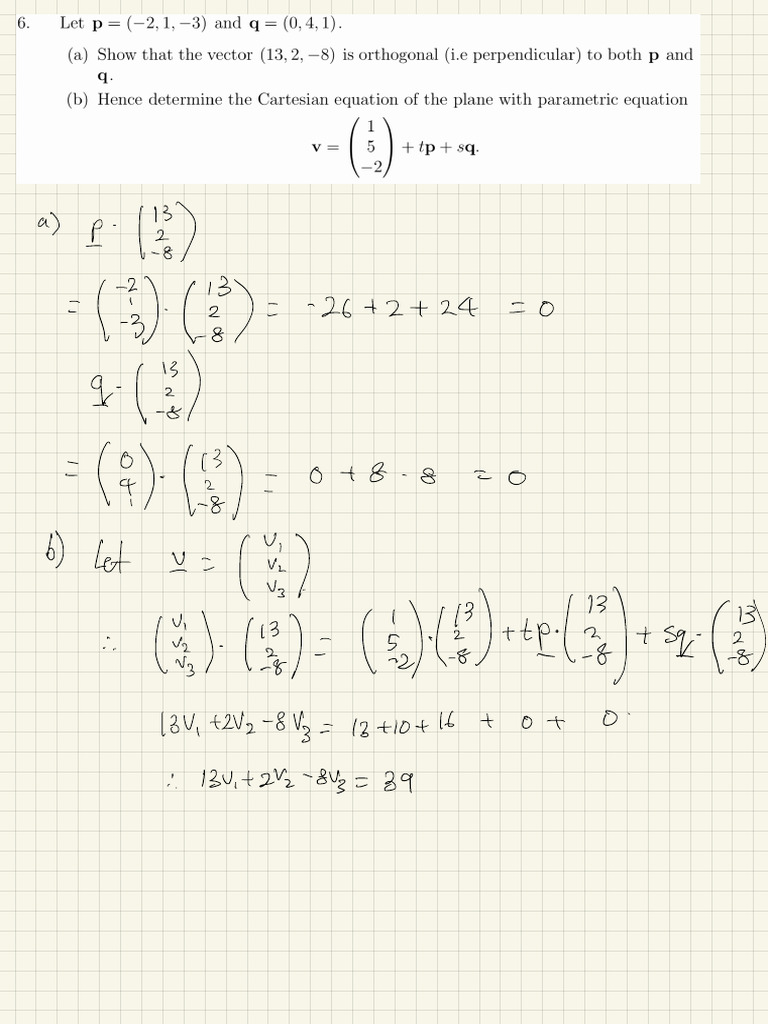 6. Let p = (−2, 1, −3) and q = (0, 4, 1).
(a) Show that the vector (13, 2, −8) is orthogonal (i.e perpendicular) to both p and
q.
(b) Hence determine the Cartesian equation of the plane with parametric equation
v = (1 5 −2) + tp + sq.
a) p · (13 2 -8)
= (-2 1 -3) · (13 2 -8) = -26 + 2 + 24 = 0
q · (13 2 -8)
= (0 4 1) · (13 2 -8) = 0 + 8 - 8 = 0
b) Let v = (V₁ V₂ V₃)
∴ (V₁ V₂ V₃) · (13 2 -8) = (1 5 -2) · (13 2 -8) + tp · (13 2 -8) + sq · (13 2 -8)
13V₁ + 2V₂ - 8V₃ = 13 + 10 + 16 + 0 + 0
∴ 13V₁ + 2V₂ - 8V₃ = 39